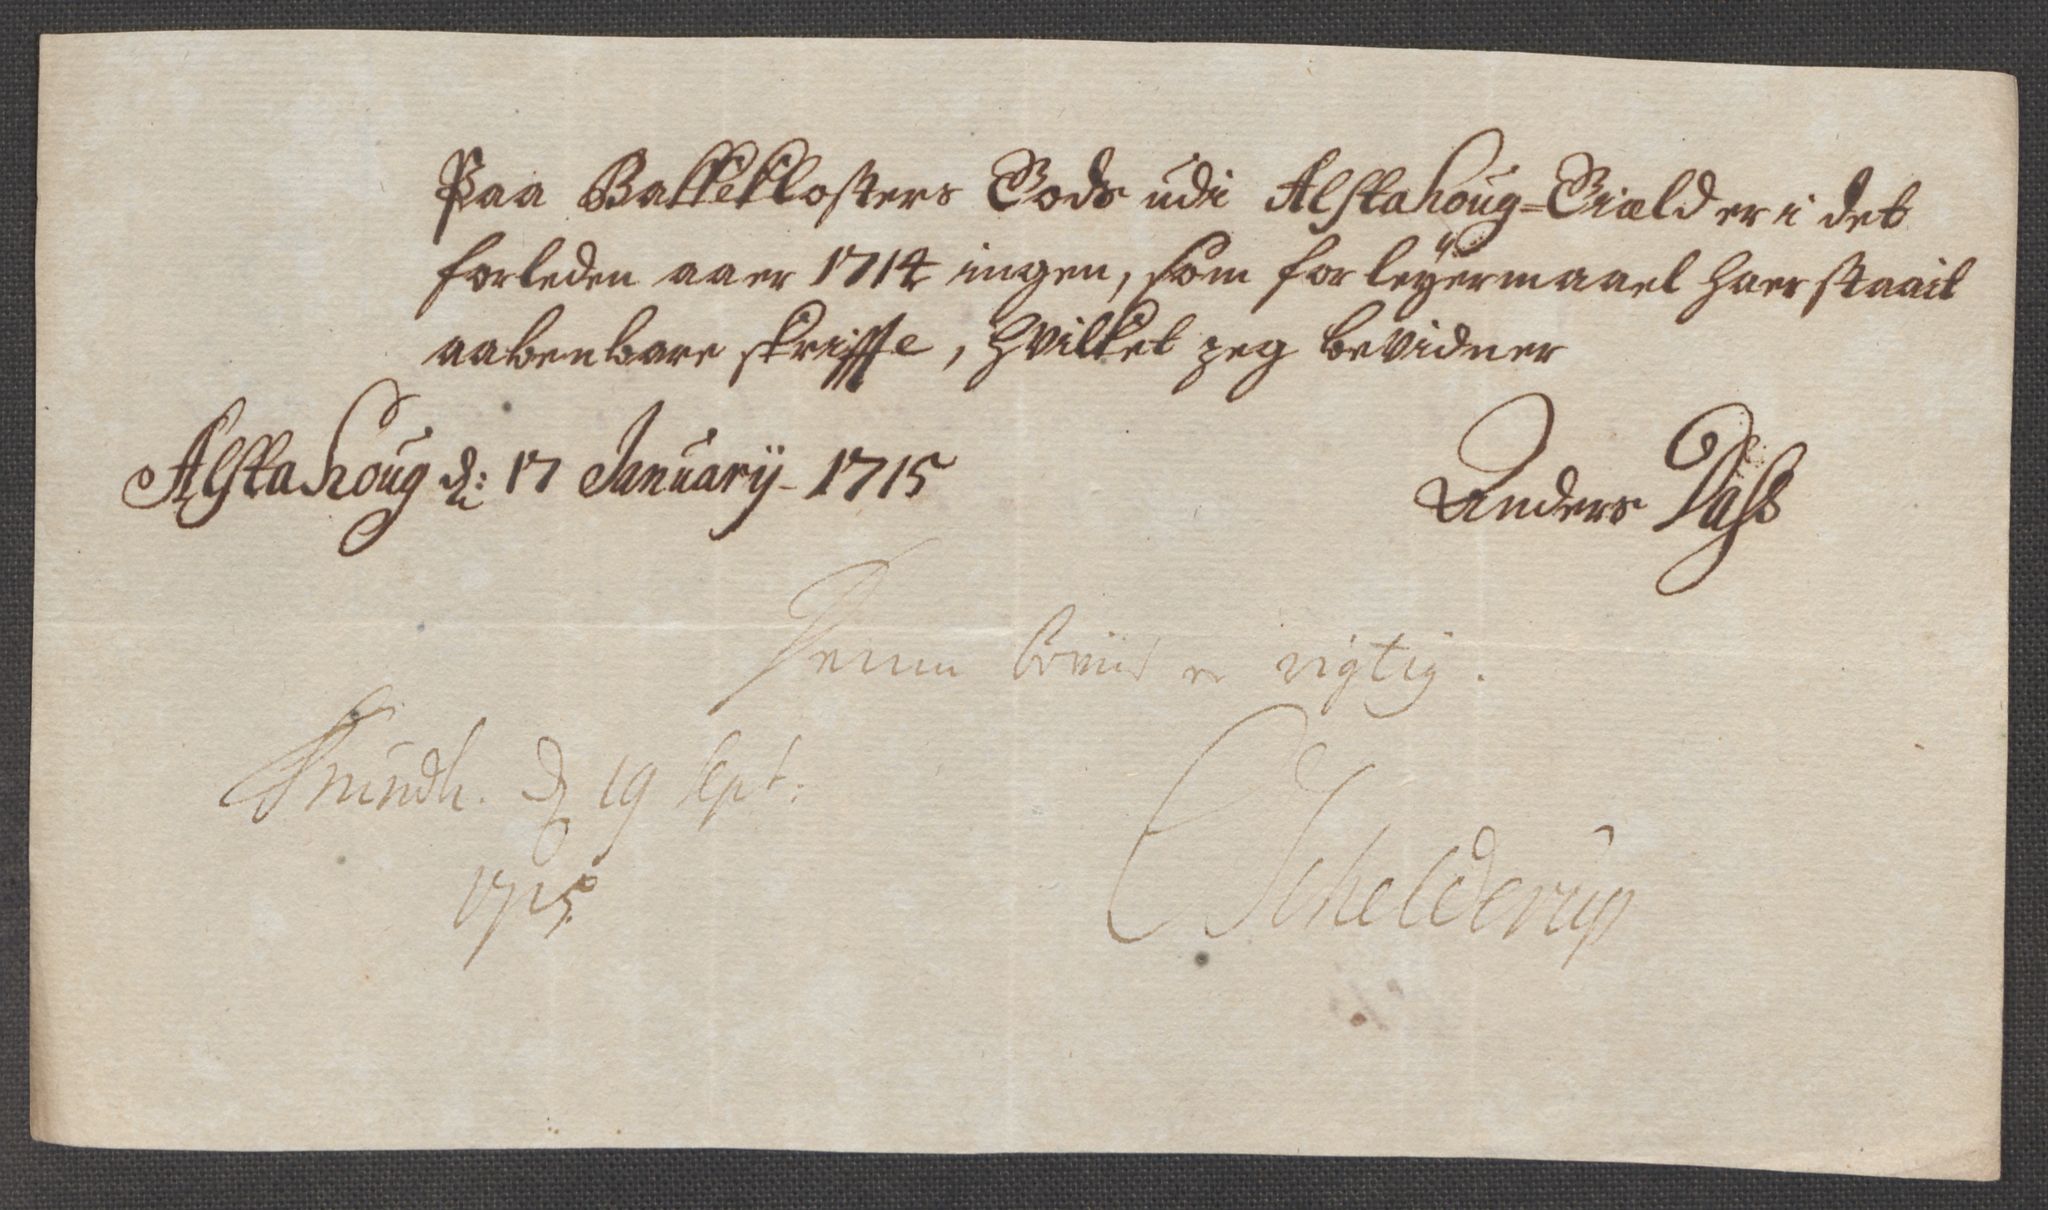 Paa Bakkeklosters Gods udi Alstahoug-Giæld er i det
forleden aaer 1714 ingen, som for leÿermaael haer staait
aabenbare skriffte, hvilket jeg bevidner
Alstahoug d: 17 Januarÿ - 1715
Anders Dass
Denne bewiis er rigtig.
Trundh. d 19 Sept:
1715
CSchelderup